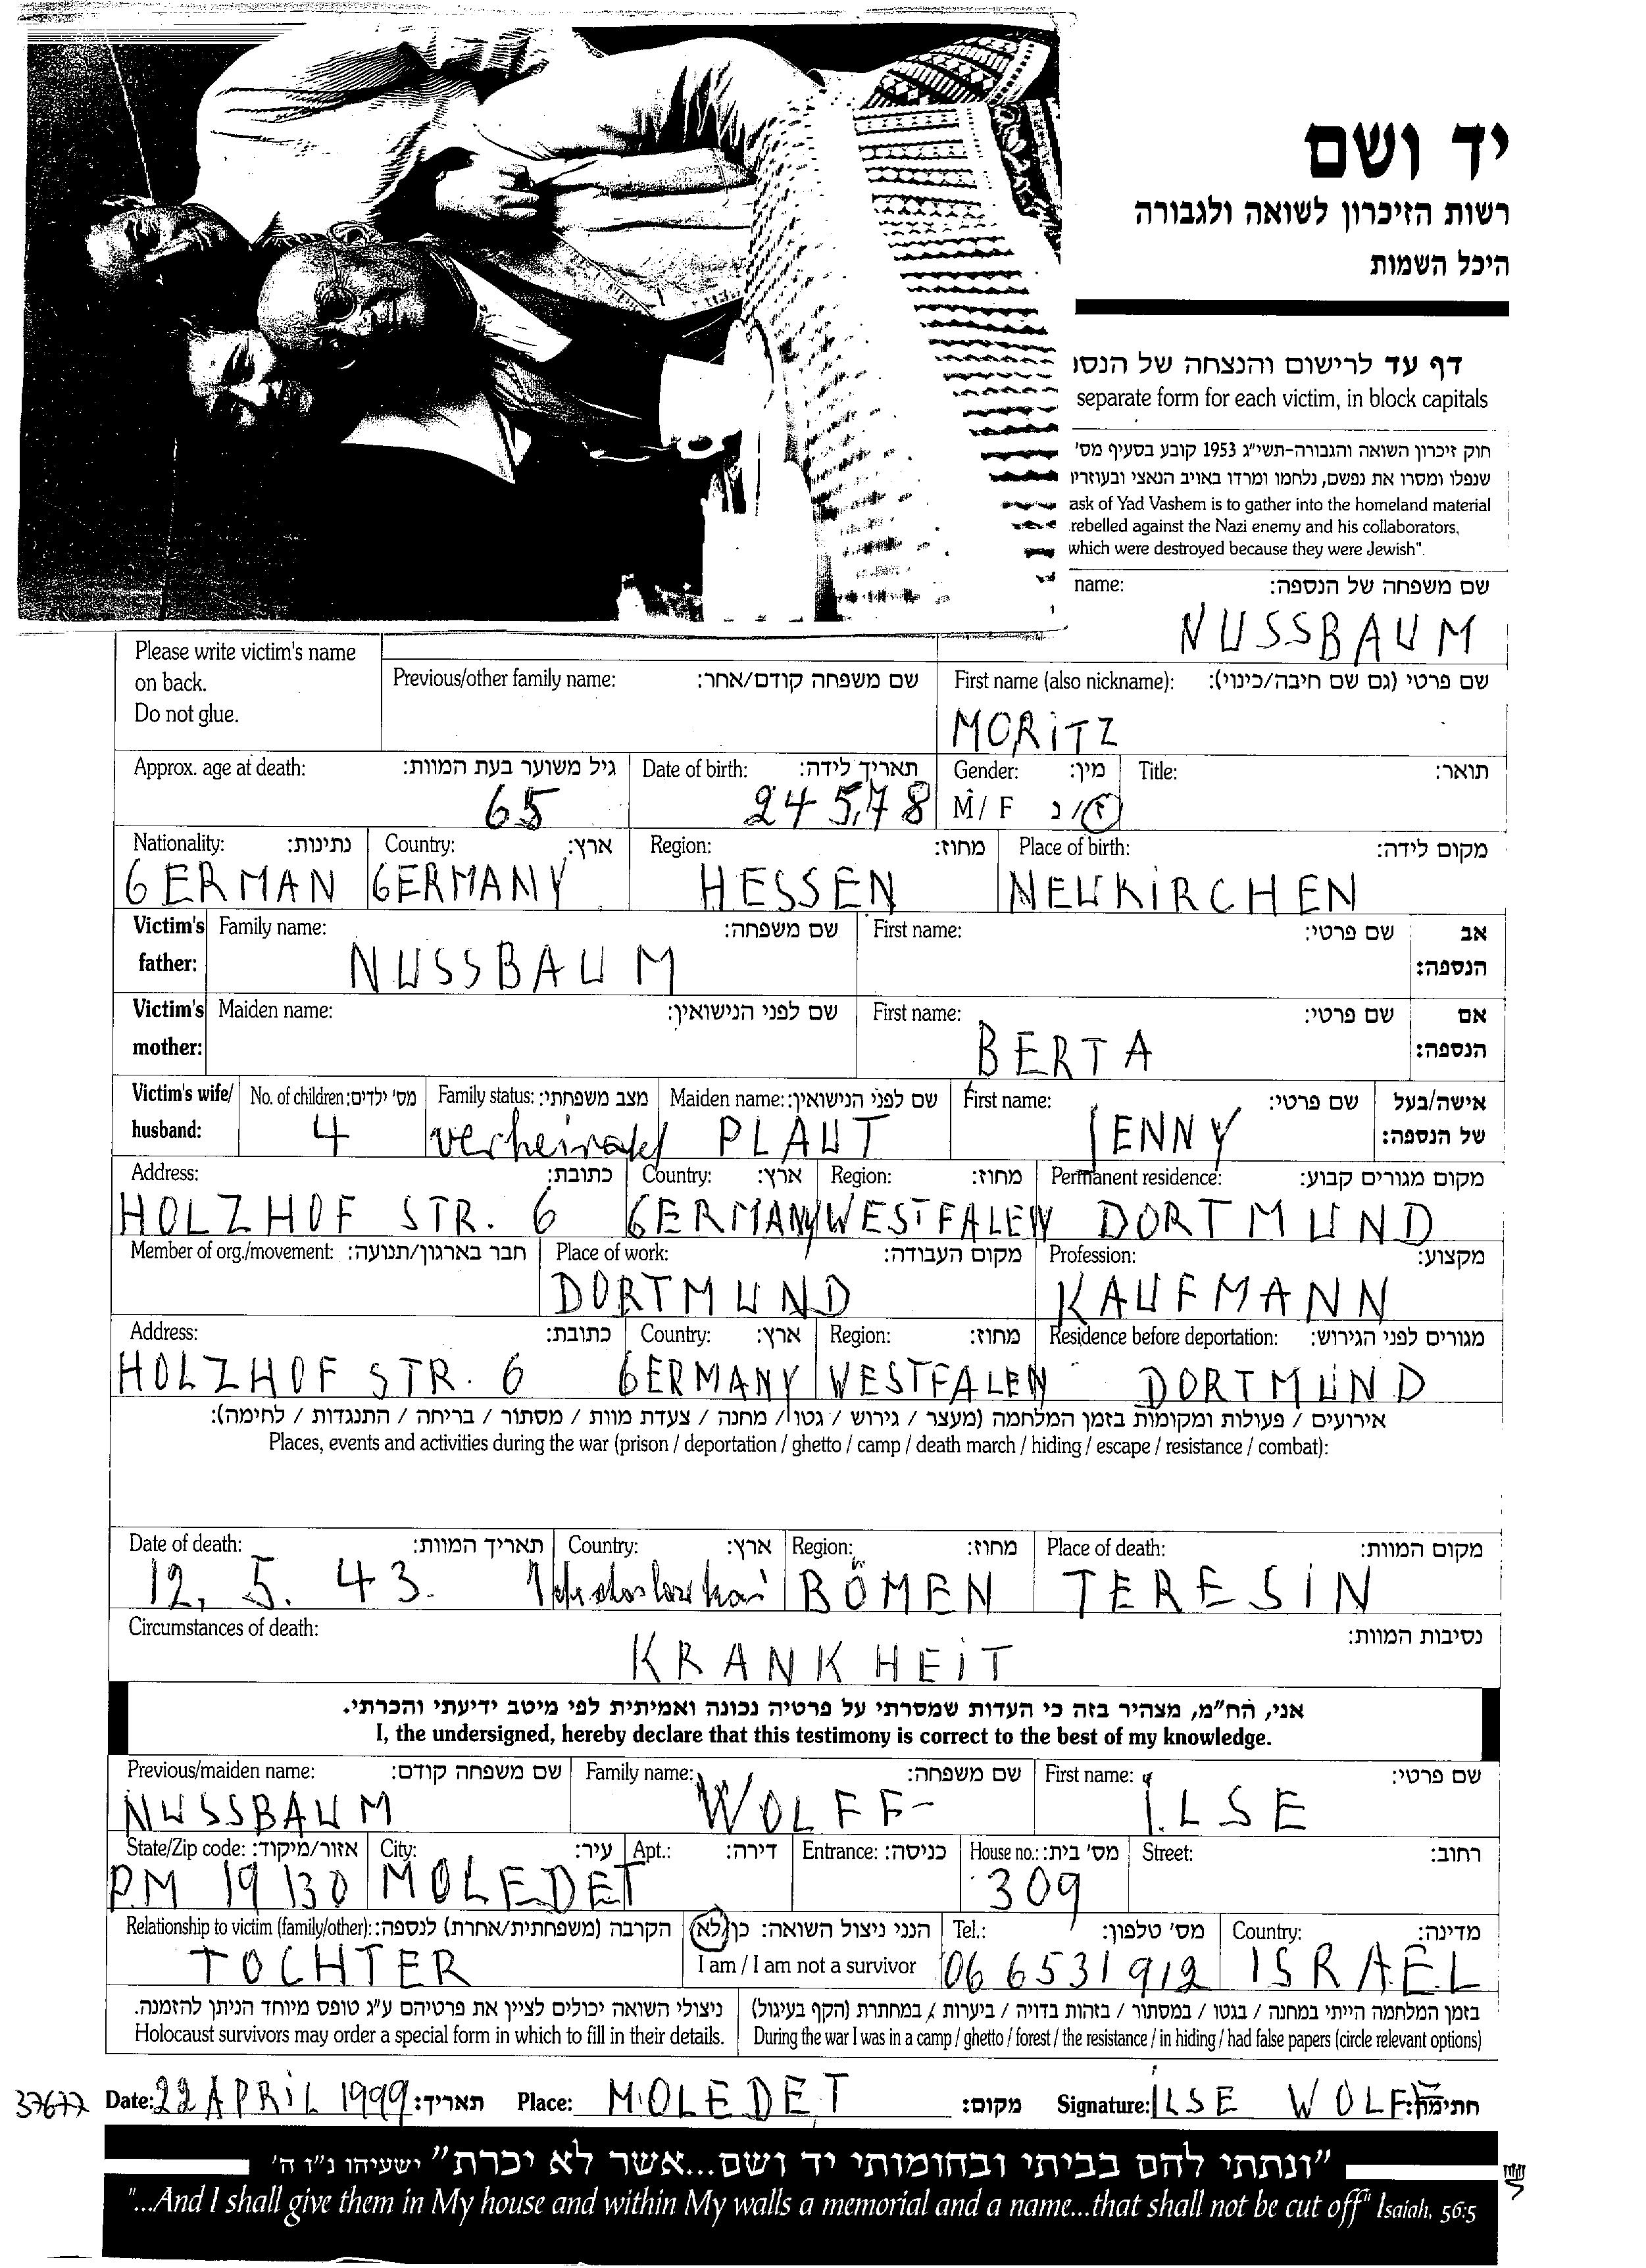 יד ושם
רשות הזיכרון לשואה ולגבורה
היכל השמות
דף עד לרישום והנצחה של הנספ
separate form for each victim, in block capitals
חוק זיכרון השואה והגבורה-תשי״ג 1953 קובע בסעיף מס'
שנפלו ומסרו את נפשם, נלחמו ומרדו באויב הנאצי ובעוזריו
ask of Yad Vashem is to gather into the homeland material
rebelled against the Nazi enemy and his collaborators,
which were destroyed because they were Jewish".
name: שם משפחה של הנספה:
NUSSBAUM
Please write victim's name
on back.
Do not glue.
Previous/other family name: שם משפחה קודם/אחר: First name (also nickname): שם פרטי (גם שם חיבה/כינוי):
MORITZ
Approx. age at death: גיל משוער בעת המוות: Date of birth: תאריך לידה: Gender: מין: Title: תואר:
65 24 5.78 M/ F ז/נ
Nationality: נתינות: Country: ארץ: Region: מחוז: Place of birth: מקום לידה:
GERMAN GERMANY HESSEN NEUKIRCHEN
Victim's father: Family name: שם משפחה: First name: שם פרטי: אב הנספה:
NUSSBAUM
Victim's mother: Maiden name: שם לפני הנישואין: First name: שם פרטי: אם הנספה:
BERTA
Victim's wife/ husband: No. of children: מס' ילדים: Family status: מצב משפחתי: Maiden name: שם לפני הנישואין: First name: שם פרטי: אישה/בעל של הנספה:
4 verheiratet PLAUT JENNY
Address: כתובת: Country: ארץ: Region: מחוז: Permanent residence: מקום מגורים קבוע:
HOLZHOF STR. 6 GERMANY WESTFALEN DORTMUND
Member of org./movement: חבר בארגון/תנועה: Place of work: מקום העבודה: Profession: מקצוע:
DORTMUND KAUFMANN
Address: כתובת: Country: ארץ: Region: מחוז: Residence before deportation: מגורים לפני הגירוש:
HOLZHOF STR. 6 GERMANY WESTFALEN DORTMUND
אירועים / פעולות ומקומות בזמן המלחמה (מעצר / גירוש / גטו / מחנה / צעדת מוות / מסתור / בריחה / התנגדות / לחימה):
Places, events and activities during the war (prison / deportation / ghetto / camp / death march / hiding / escape / resistance / combat):
Date of death: תאריך המוות: Country: ארץ: Region: מחוז: Place of death: מקום המוות:
12. 5. 43. BÖhMEN TERESIN
Circumstances of death: נסיבות המוות:
KRANKHEIT
אני, הח״מ, מצהיר בזה כי העדות שמסרתי על פרטיה נכונה ואמיתית לפי מיטב ידיעתי והכרתי.
I, the undersigned, hereby declare that this testimony is correct to the best of my knowledge.
Previous/maiden name: שם משפחה קודם: Family name: שם משפחה: First name: שם פרטי:
NUSSBAUM WOLFF- ILSE
State/Zip code: אזור/מיקוד: City: עיר: Apt.: דירה: Entrance: כניסה: House no.: מס' בית: Street: רחוב:
P.M 19130 MOLEDET 309
Relationship to victim (family/other): הקרבה (משפחתית/אחרת) לנספה: הנני ניצול השואה: כן/לא Tel.: מס' טלפון: Country: מדינה:
TOCHTER I am / I am not a survivor 06 6531912 ISRAEL
ניצולי השואה יכולים לציין את פרטיהם ע״ג טופס מיוחד הניתן להזמנה. בזמן המלחמה הייתי במחנה / בגטו / במסתור / בזהות בדויה / ביערות / במחתרת (הקף בעיגול)
Holocaust survivors may order a special form in which to fill in their details. During the war I was in a camp / ghetto / forest / the resistance / in hiding / had false papers (circle relevant options)
37677 Date: 22 APRIL 1999 תאריך: Place: MOLEDET מקום: Signature: ILSE WOLFF חתימה:
״ונתתי להם בביתי ובחומותי יד ושם...אשר לא יכרת״ ישעיהו נ״ו ה'
"...And I shall give them in My house and within My walls a memorial and a name...that shall not be cut off" Isaiah, 56:5